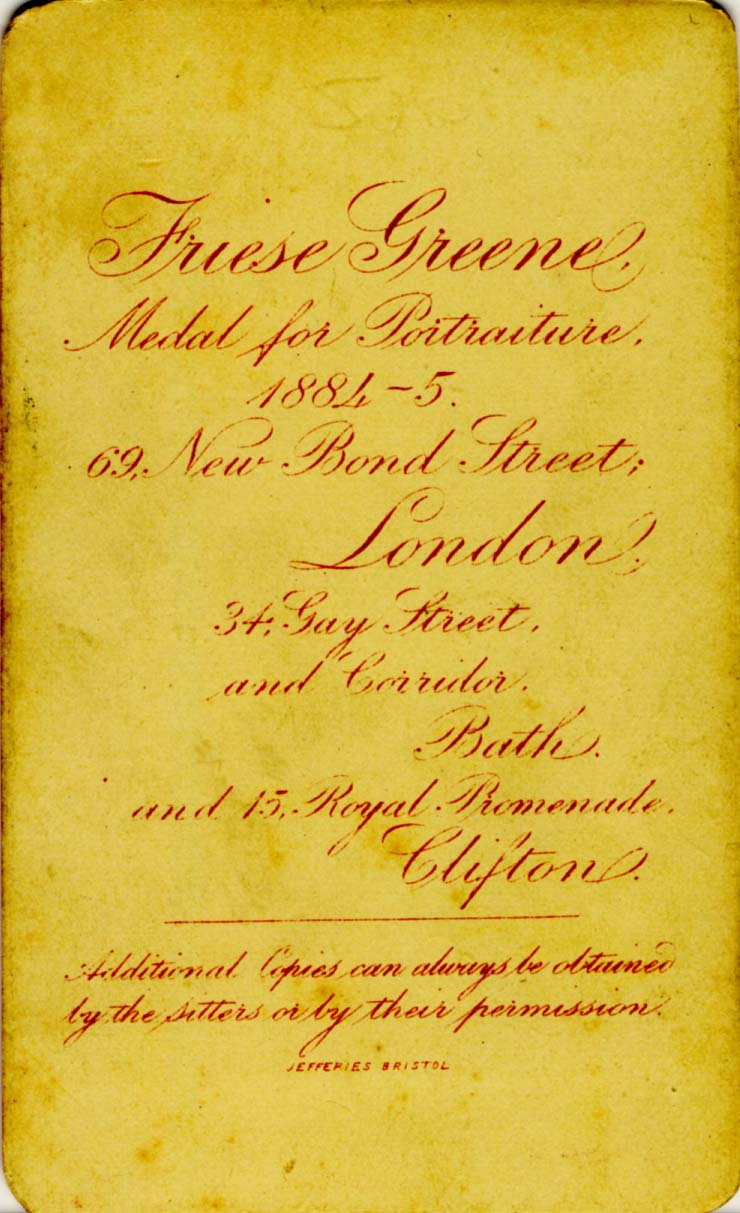 Friese Greene,
Medal for Portraiture.
1884-5.
69, New Bond Street;
London,
34, Gay Street,
and Corridor.
Bath.
and 15, Royal Promenade.
Clifton.
Additional Copies can always be obtained
by the sitters or by their permission.
JEFFERIES BRISTOL